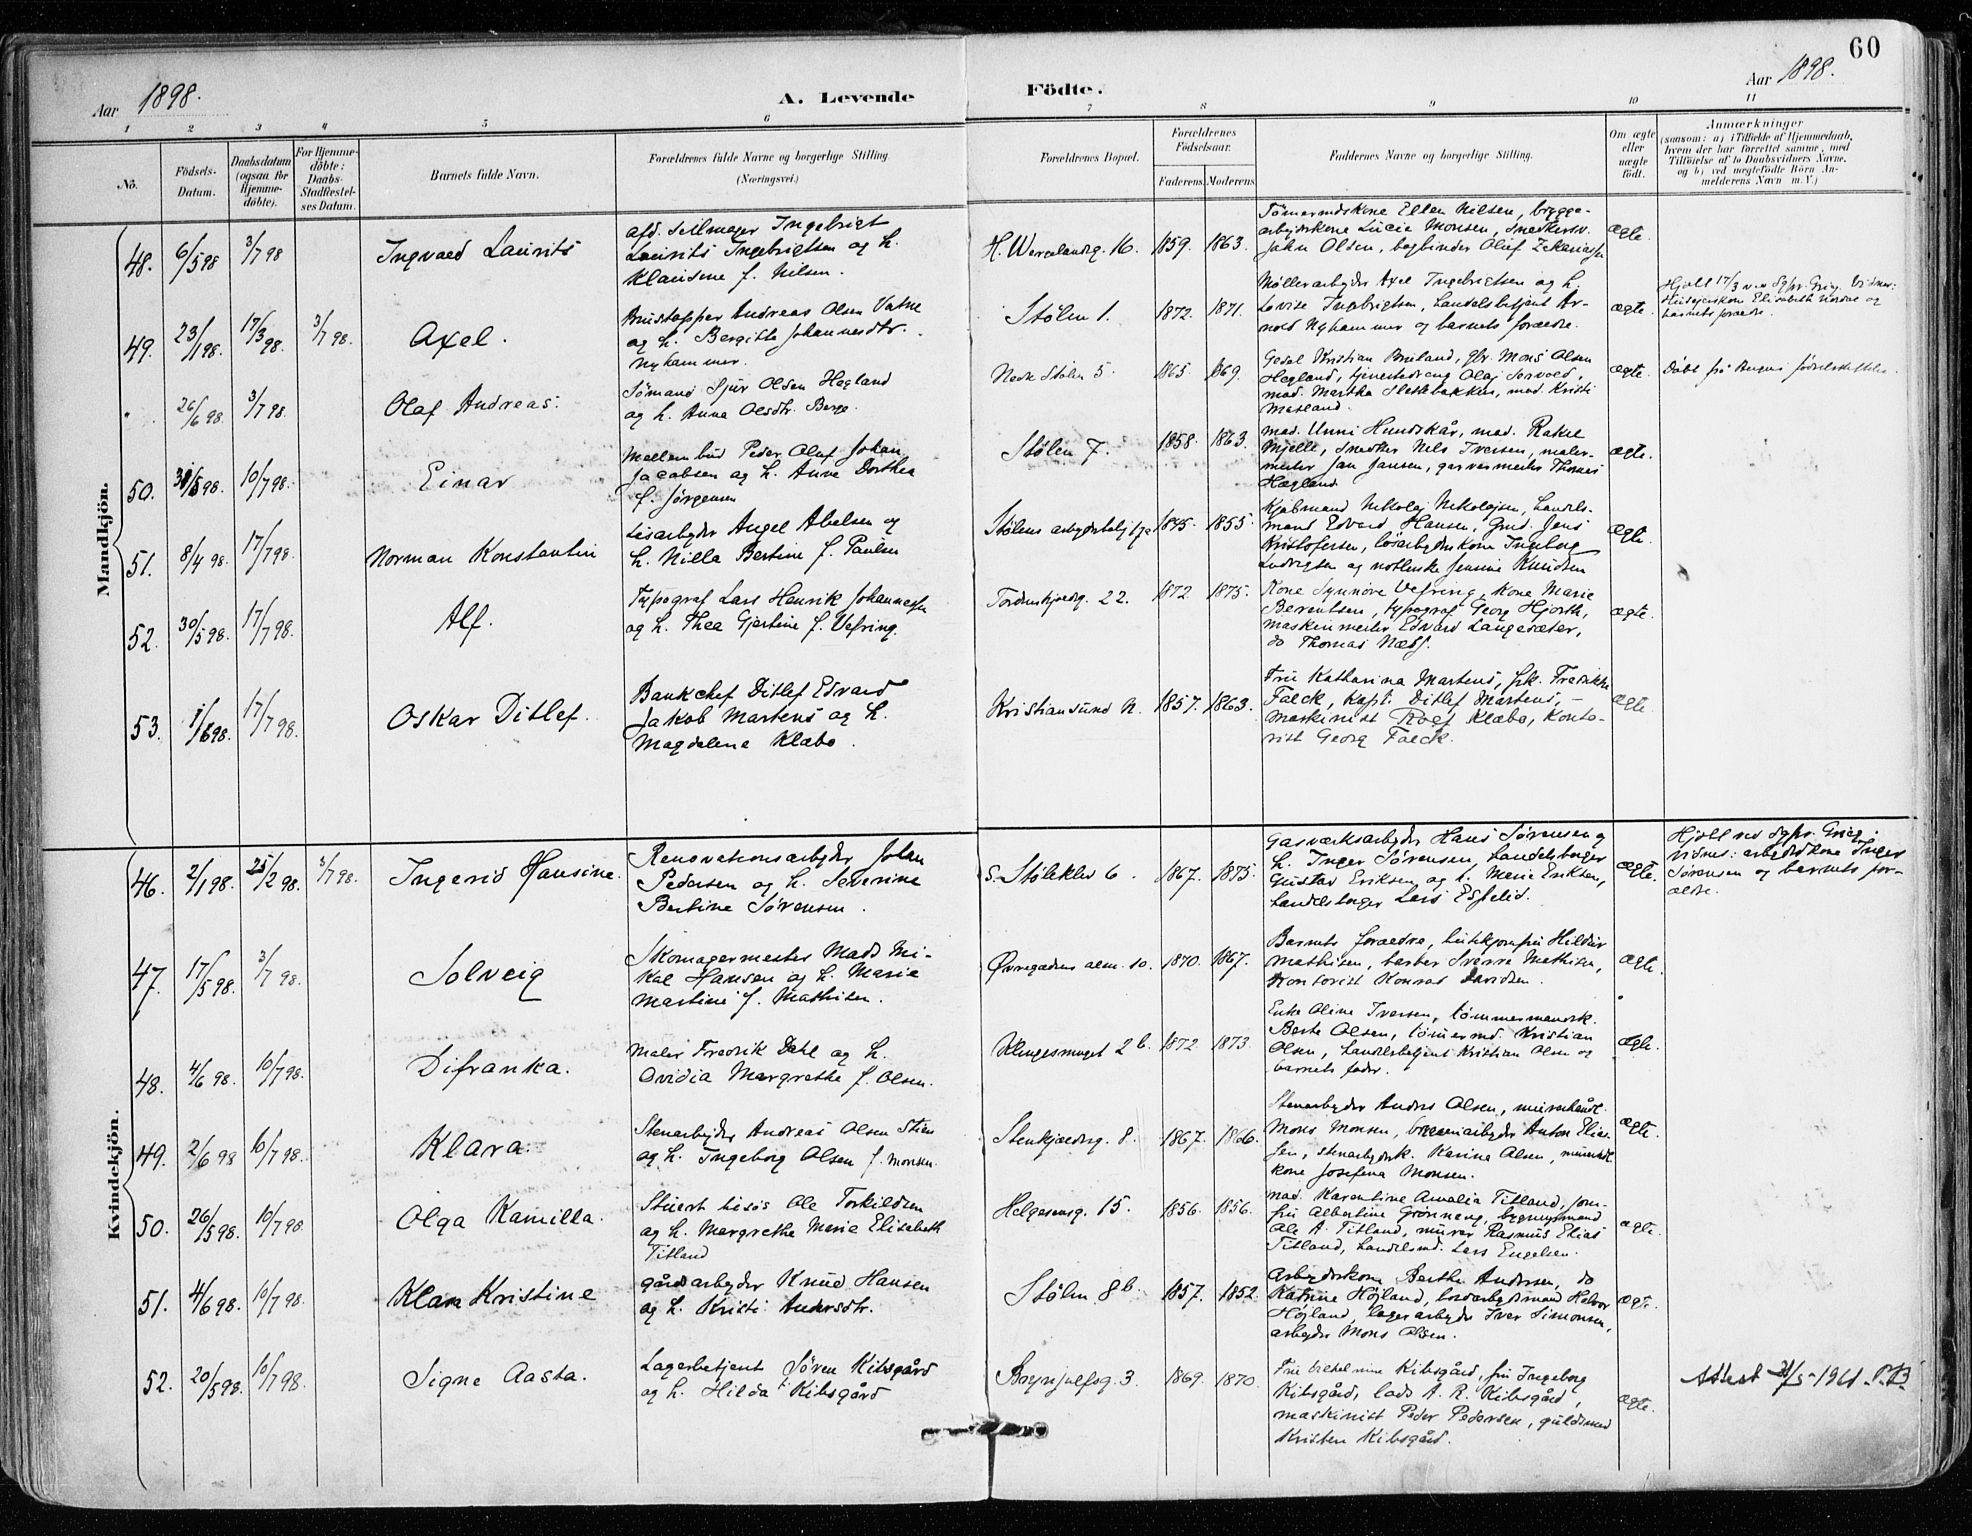 60
Aar 1898.
A. Levende Födte.
Aar 1898.
1 2 3 4 5 6 7 8 9 10 11
No.
Födsels-
Datum.
Daabsdatum
(ogsaa for
Hjemme-
döbte).
For Hjemme-
döbte:
Daabs-
Stadfæstel-
ses Datum.
Barnets fulde Navn.
Forældrenes fulde Navne og borgerlige Stilling.
(Næringsvei.)
Forældrenes Bopæl.
Forældrenes
Födselsaar.
Faderens. Moderens.
Faddernes Navne og borgerlig Stilling.
Om ægte
eller
uægte
födt.
Anmærkninger
(saasom: a) i Tilfælde af Hjemmedaab,
hvem der har forrettet samme, med
Tilföielse af to Daabsvidners Navne,
og b) ved uægtefödte Börn An-
melderens Navn m. V.)
Mandkjön.
48. 6/5 98 3/7 98 Ingvald Laurits
afd. seilmager Ingebrigt
Laurits Ingebrigtsen og h.
Klausine f. Nilsen.
H. Wergelandsg. 16. 1859. 1863.
Tömermdskone Ellen Nilsen, brygge-
arbeiderkone Lucie Monsen, snedkersv.
John Olsen, bogbinder Oluf
ægte.
49. 23/1 98. 17/3 98. 3/7 98. Axel.
Andreas Olsen Vatne
og h. Bergitte Johannesdtr.
Nyhammer.
Stølen 1. 1872. 1871.
Møllerarbeyder Axel Ingebrigtsen og h.
Lovise Ingebrigtsen, handelsbetjent Ar-
nold Nyhammer og barnets forældre.
ægte.
Hjdbt 17/3 v. Sgpr. Grieg. Vidner:
Elisabeth og
barnets forældre.
26/6 98. 3/7 98. Olaf Andreas.
Sømand Sjur Olsen Hegland
og h. Anna Olsdtr. Berge.
Nedr Stølen 5. 1865. 1869.
Gesel Kristian gbr. Mons Olsen
Hegland, tjenestedreng Olaj
mad. Martha Slettebakken, mad. Kristi
Mæland.
ægte.
Døbt på
50. 31/5 98. 10/7 98. Einar
Peder Olaf Johan
Jacobsen og h. Anne Dorthea
f. Jørgensen
Stølen 7. 1858. 1863.
mad. Unni Hundskår, mad. Rakel
Mjelle, snedker Nels Iversen, maler-
mester Jan Jansen, garvermester Thomas
Hægland
ægte.
51. 8/4 98. 17/7 98. Norman Konstantin
Løsarbeyder Angel Abelsen og
h. Nilla Bertine f. Paulsen
Stølens 1845. 1855.
Kjøbmand Nikolaj Nikolajsen, handels-
mand Edvard Hansen, Jens
Kristofersen, løsarbeyderkone Ingeborg
Ludvigsen og Jensine Knudsen
ægte.
52. 30/5 98. 17/7 98. Alf.
Typograf Lars Henrik Johannesen
og h. Thea Gjertine f. Vefring.
Tordenskjoldsg. 22. 1872. 1875.
Kone Synnøve Vefring, kone Marie
Berentsen, typograf Georg Hjorth,
maskinmester Edvard Langesæter,
do Thomas Næss.
ægte.
53. 1/6 98. 17/7 98. Oskar Ditlef.
Bankchef Ditlef Edvard
Jakob Martens og h.
Magdalena Klæbo.
Kristiansund N. 1857. 1863.
Frue Katharina Martens, frk. Fredrikke
Falck, kapt. Ditlef Martens, -
maskinist Rolf Klæbo, konto-
rist Georg Falck.
ægte.
Kvindekjön.
46. 2/1 98. 25/2 98. 3/7 98. Ingerid Hansine.
Renovationsarbeyder Johan
Pedersen og h. Severine
Bertine Sørensen.
S. Støleklev 6. 1867. 1875.
Gasværksarbeyder Hans Sørensen og
h. Inger Sørensen, handelsborger
Gustav Eriksen og h. Marie Eriksen,
handelsborger Lars Espelid.
ægte.
Hjdbt ved Sgpr. Grieg.
Vidner: arbeyderkone Inger
Sørensen og barnets for-
ældre.
47. 17/5 98. 3/7 98. Solveig
Skomagermester Mads Mi-
kal Hansen og h. Marie
Martine f. Mathisen.
Øvregadens alm. 10. 1870. 1867.
Barnets forældre, butikjomfru Hildur
Mathisen, barber Sverre Mathisen,
kontorist Konrad Davidsen.
ægte.
48. 4/6 98. 10/7 98. Difranka.
Maler Fredrik Dahl og h.
Ovidia Margrethe f. Olsen.
Klingesmuget 2 b. 1872. 1873.
Enke Oline Iversen, tømmermandsk.
Berte Olsen, tømermd. Kristian
Olsen, handelsbetjent Kristian Olsen og
barnets fader.
ægte.
49. 2/6 98 10/7 98. Klara.
Stenarbeyder Andreas Olsen Stien
og h. Ingeborg Olsen f. Monsen.
Stenkjeldersg. 8. 1867. 1866.
Stenarbeyder Anders Olsen, murerhåndt.
Mons Monsen, Anton Elias-
sen, stenarbeyderk. Karina Olsen,
kone Josefina Monsen.
ægte.
50. 26/5 98. 10/7 98. Olga Kamilla.
Stuert tilsøs Ole Torkildsen
og h. Margrethe Marie Elisabeth
Titland
Helgesensg. 15. 1856. 1856.
mad. Karentine Amalia Titland, jom-
fru Albertine Grønneng, bygningsmand
Ole A. Titland, murer Rasmus Elias
Titland, handelsmd. Lars Engelsen.
ægte.
51. 4/6 98. 10/7 98. Klara Kristine
gårdsarbeyder Knud Hansen
og h. Kristi Andersdtr.
Stølen 8b. 1857. 1852.
Arbeyderkone Berthe Andersen, do
Katrine Højland, Halvor
Højland, lagerarbeyder Iver Simonsen,
arbeyder Mons Olsen.
ægte.
52. 20/5 98. 10/7 98. Signe Aasta.
Lagerbetjent Søren Kibsgård
og h. Hilda f. Kibsgård
Brynjulfsg. 3. 1869. 1870.
Frue Vilhelmine Kibsgård, fru Ingeborg
Kibsgård, lods A. R. Kibsgård,
maskinist Peder Pedersen, guldsmed
Kristen Kibsgård.
ægte.
Attest 31/5-1961.